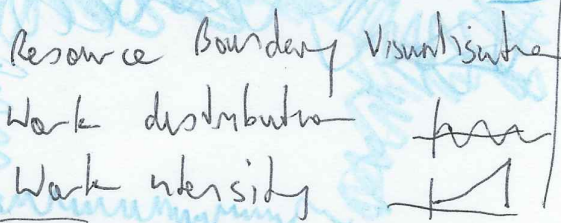 Resource Boundary Visualisation
Work distribution
Work intensity